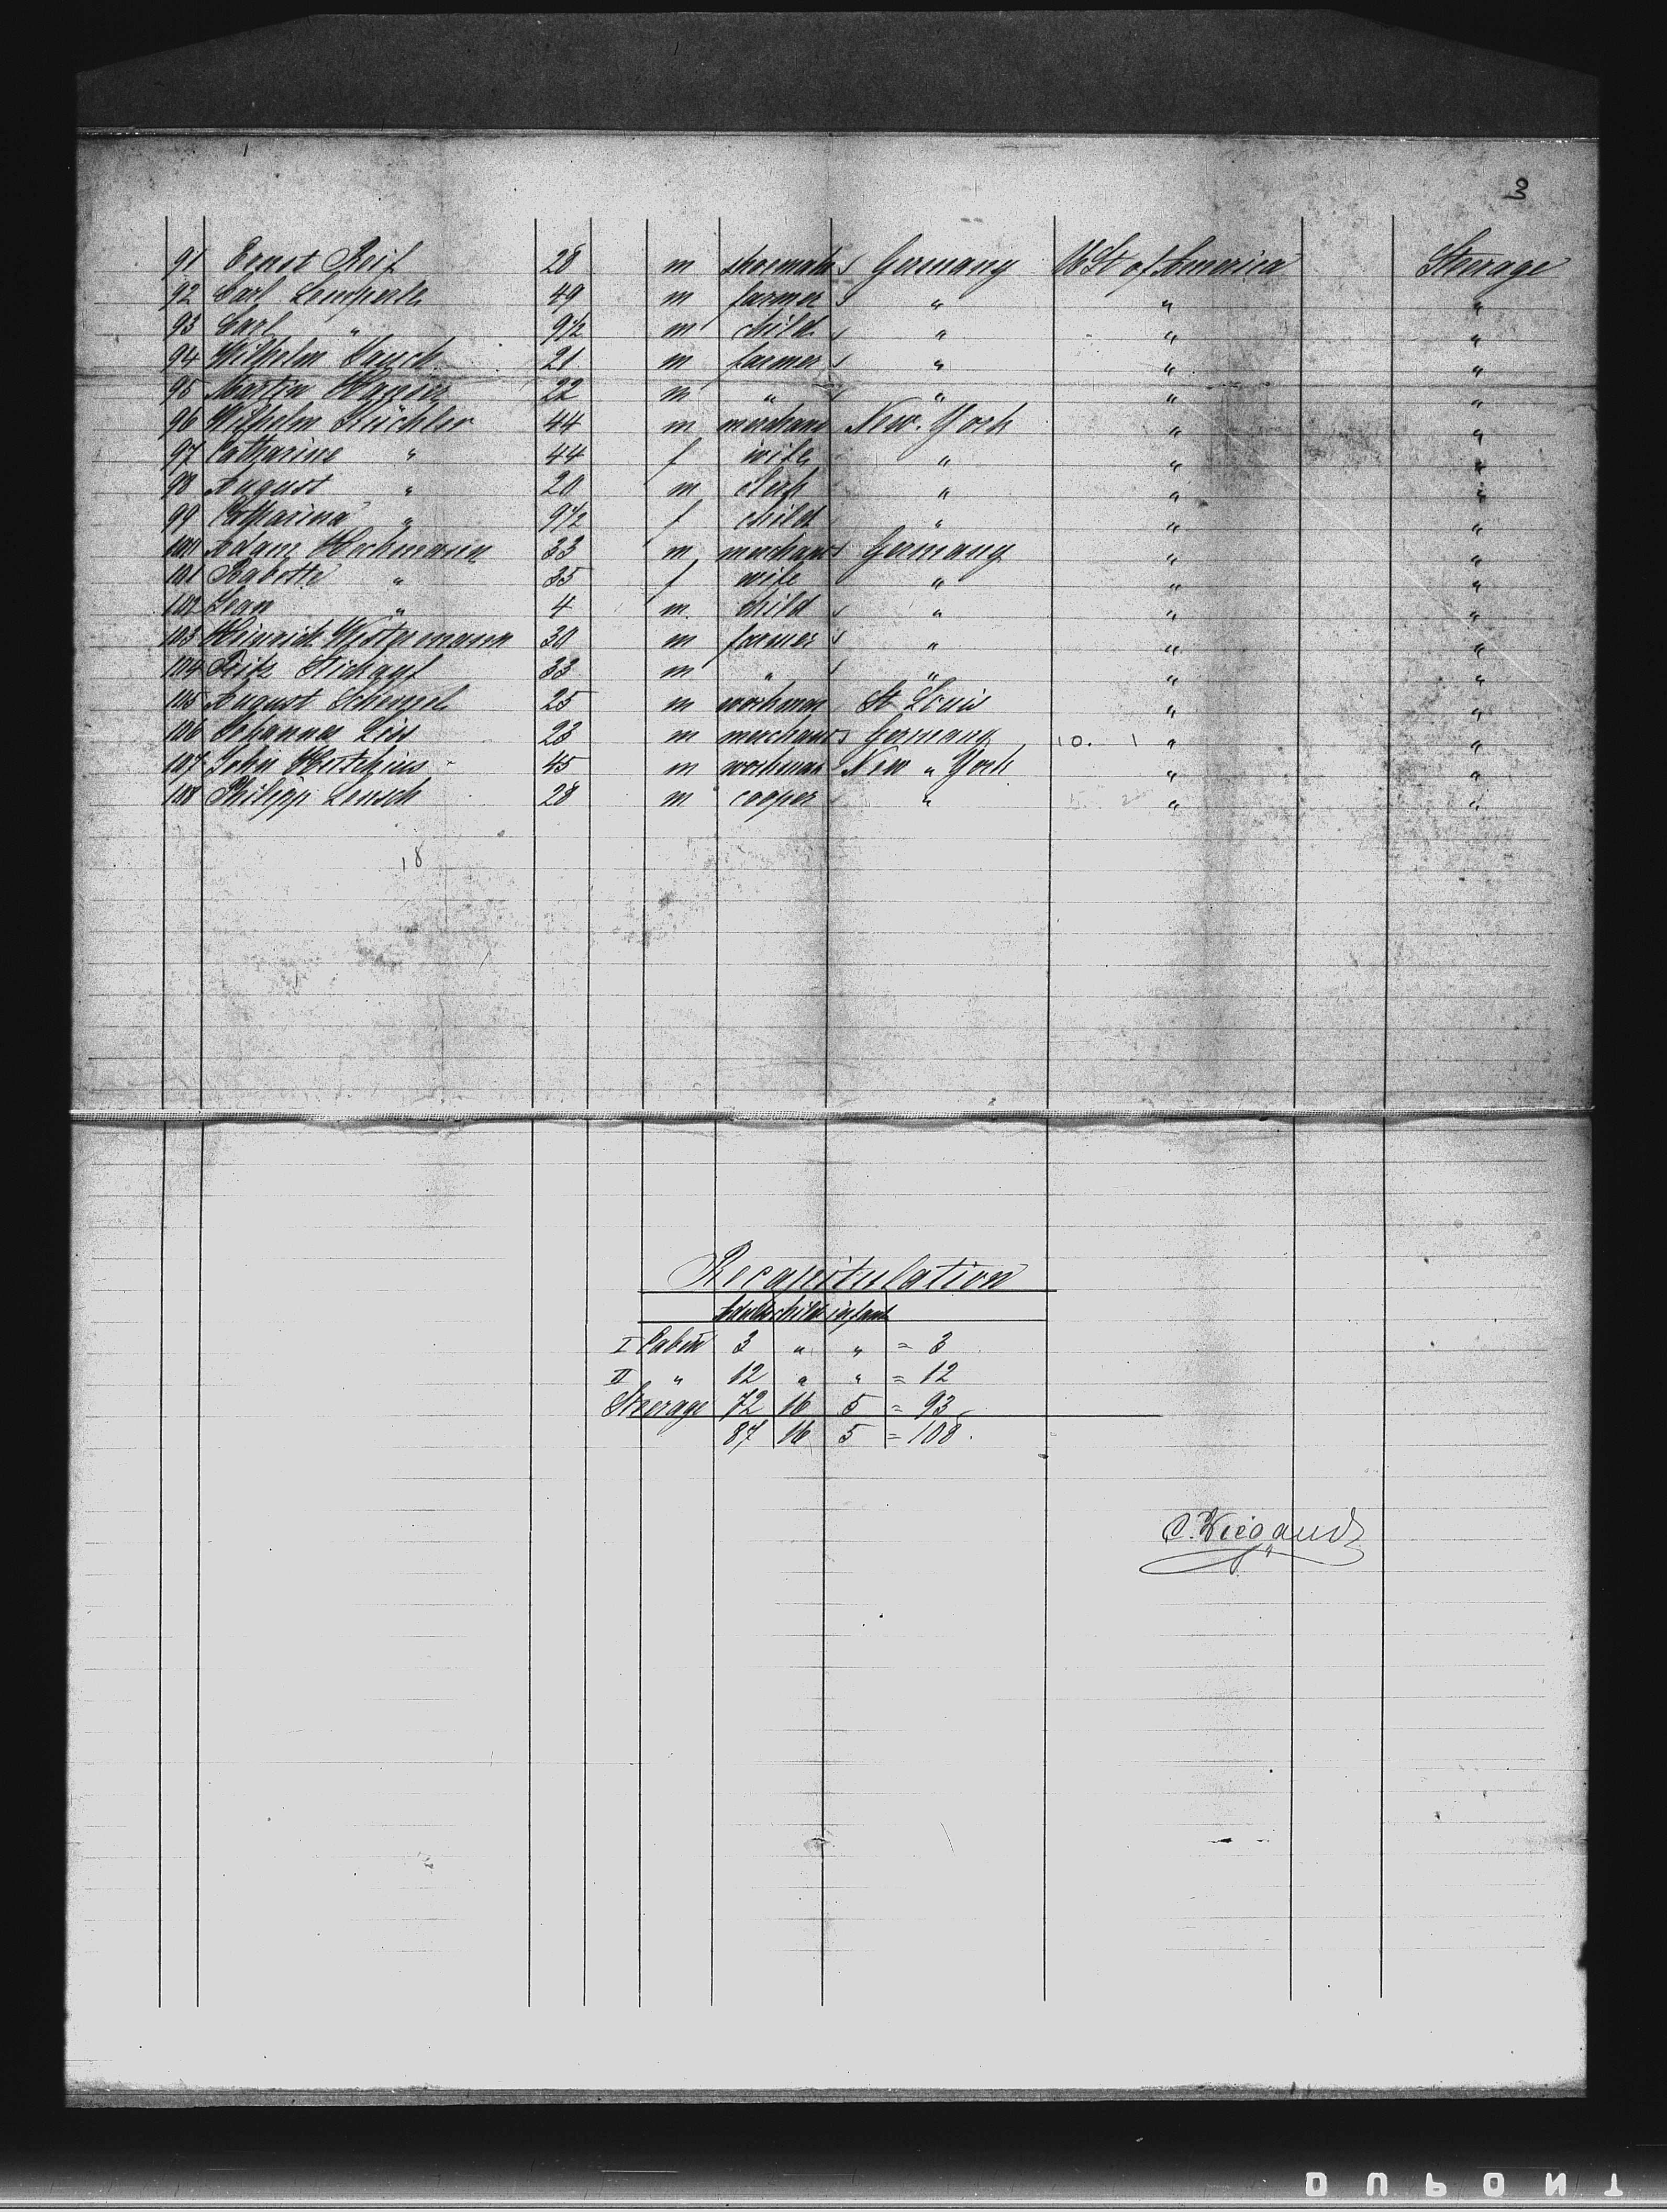 3
91 Ernst Reif 28 m shoemak Germany U St of America Steerage
92 Carl Lemperle 49 m farmer " " "
93 Carl " 9 1/2 m child " " "
94 Wilhelm 21 m farmer " " "
95 Martin Hauser 22 m " " " "
96 Wilhelm Küchler 44 m merchant New York " "
97 Catharine " 44 f wife " " "
98 August " 20 m clerk " " "
99 Catharina " 9 1/2 f child " " "
100 Adam Heckmann 33 m merchant Germany " "
101 Babette " 35 f wife " " "
102 Jean " 4 m child " " "
103 Heinrich Westermann 30 m farmer " " "
104 Fritz 33 m " " " "
105 August Schenzel 25 m workman St Louis " "
106 Johannes 23 m merchant Germany 10. 1 " "
107 John Hutchins 45 m workman New " York " "
108 Philipp Lensch 28 m cooper " " "
18
Recapitulation
Adults child infant
I Cabin 3 " " = 3
II " 12 " " = 12
Steerage 72 16 5 = 93
87 16 5 = 108.
C. Wiegand
DUPONT